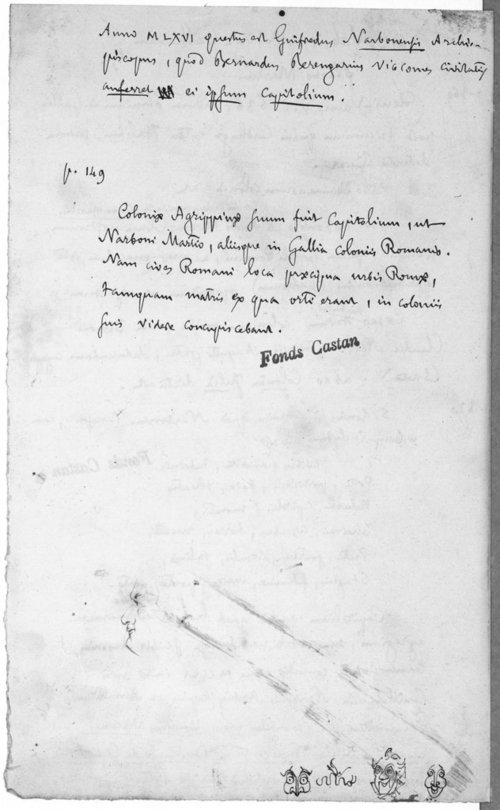 Anno MLXVI questus est Guifredus Narbonensis Archie-
piscopus, quòd Bernardus Berengarius Vicecomes civitatis
auferret ei ipsum Capitolium.
p. 149
Coloniæ Agrippinæ suum fuit Capitolium, ut
Narboni Martio, aliisque in Gallia coloniis Romanis.
Nam cives Romani loca præcipua urbis Romæ,
tamquam matris ex qua orti erant, in coloniis
suis videre concupiscebant.
Fonds Castan